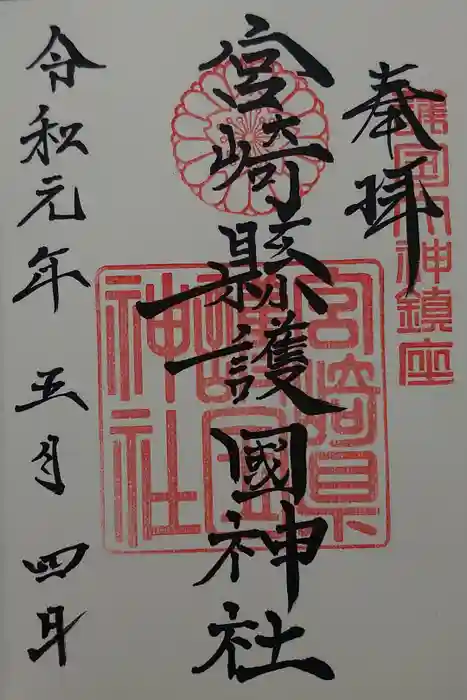 奉拝
護国神鎮座
宮崎縣護國神社
宮崎県護国神社
令和元年 五月 四日